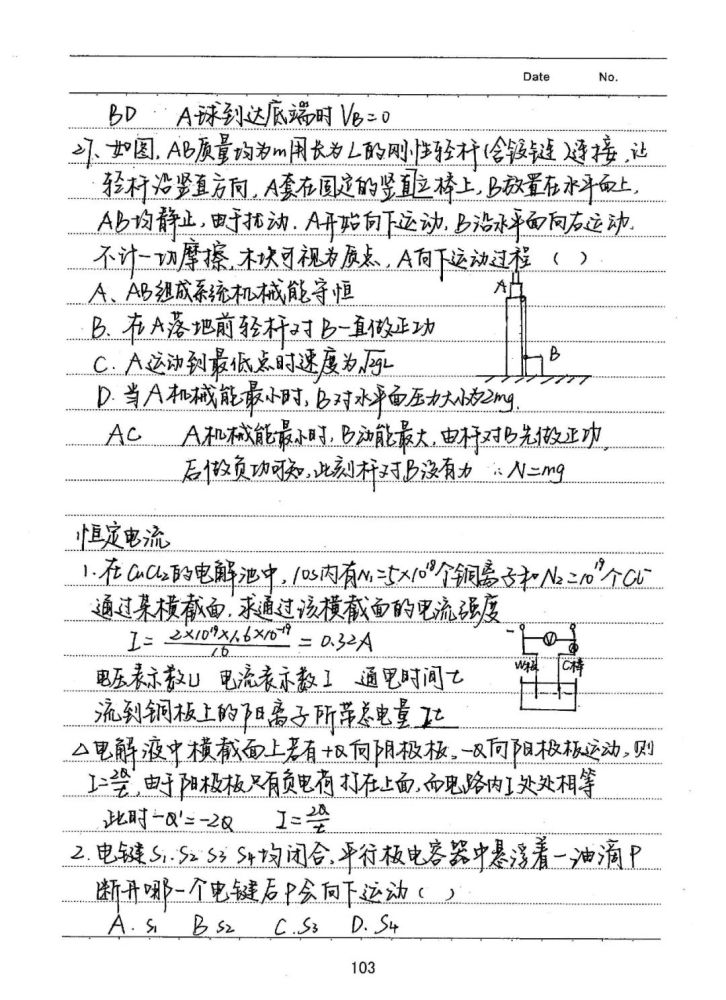 Date No.
BD A球到达底端时 VB=0
27、如图,AB质量均为m用长为L的刚性轻杆(含铰链)连接,让
轻杆沿竖直方向,A套在固定的竖直立棒上,B放置在水平面上,
AB均静止,由于扰动,A开始向下运动,B沿水平面向右运动.
不计一切摩擦,木块可视为质点,A向下运动过程 ( )
A、AB组成系统机械能守恒
B. 在A落地前轻杆对B一直做正功
C. A运动到最低点时速度为√2gL
D. 当A机械能最小时,B对水平面压力大小为2mg.
A
B
AC A机械能最小时,B动能最大,由杆对B先做正功,
后做负功可知,此刻杆对B没有力 ∴N=mg
恒定电流
1.在CuCl2的电解池中,10s内有N1=5×10¹⁸个铜离子和N2=10¹⁹个Cl⁻
通过某横截面,求通过该横截面的电流强度
I= 2×10¹⁹×1.6×10⁻¹⁹/10 = 0.32A
电压表示数U 电流表示数I 通电时间t
流到铜板上的阳离子所带总电量 It
- V
C棒
△电解液中横截面上若有+Q向阴极板,-Q向阳极板运动,则
I=2Q/t,由于阳极板只有负电荷打在上面,而电路内I处处相等
此时-Q'=-2Q I=2Q/t
2.电键S1.S2 S3 S4均闭合,平行板电容器中悬浮着一油滴P
断开哪一个电键后P会向下运动( )
A. S1 B S2 C.S3 D. S4
103